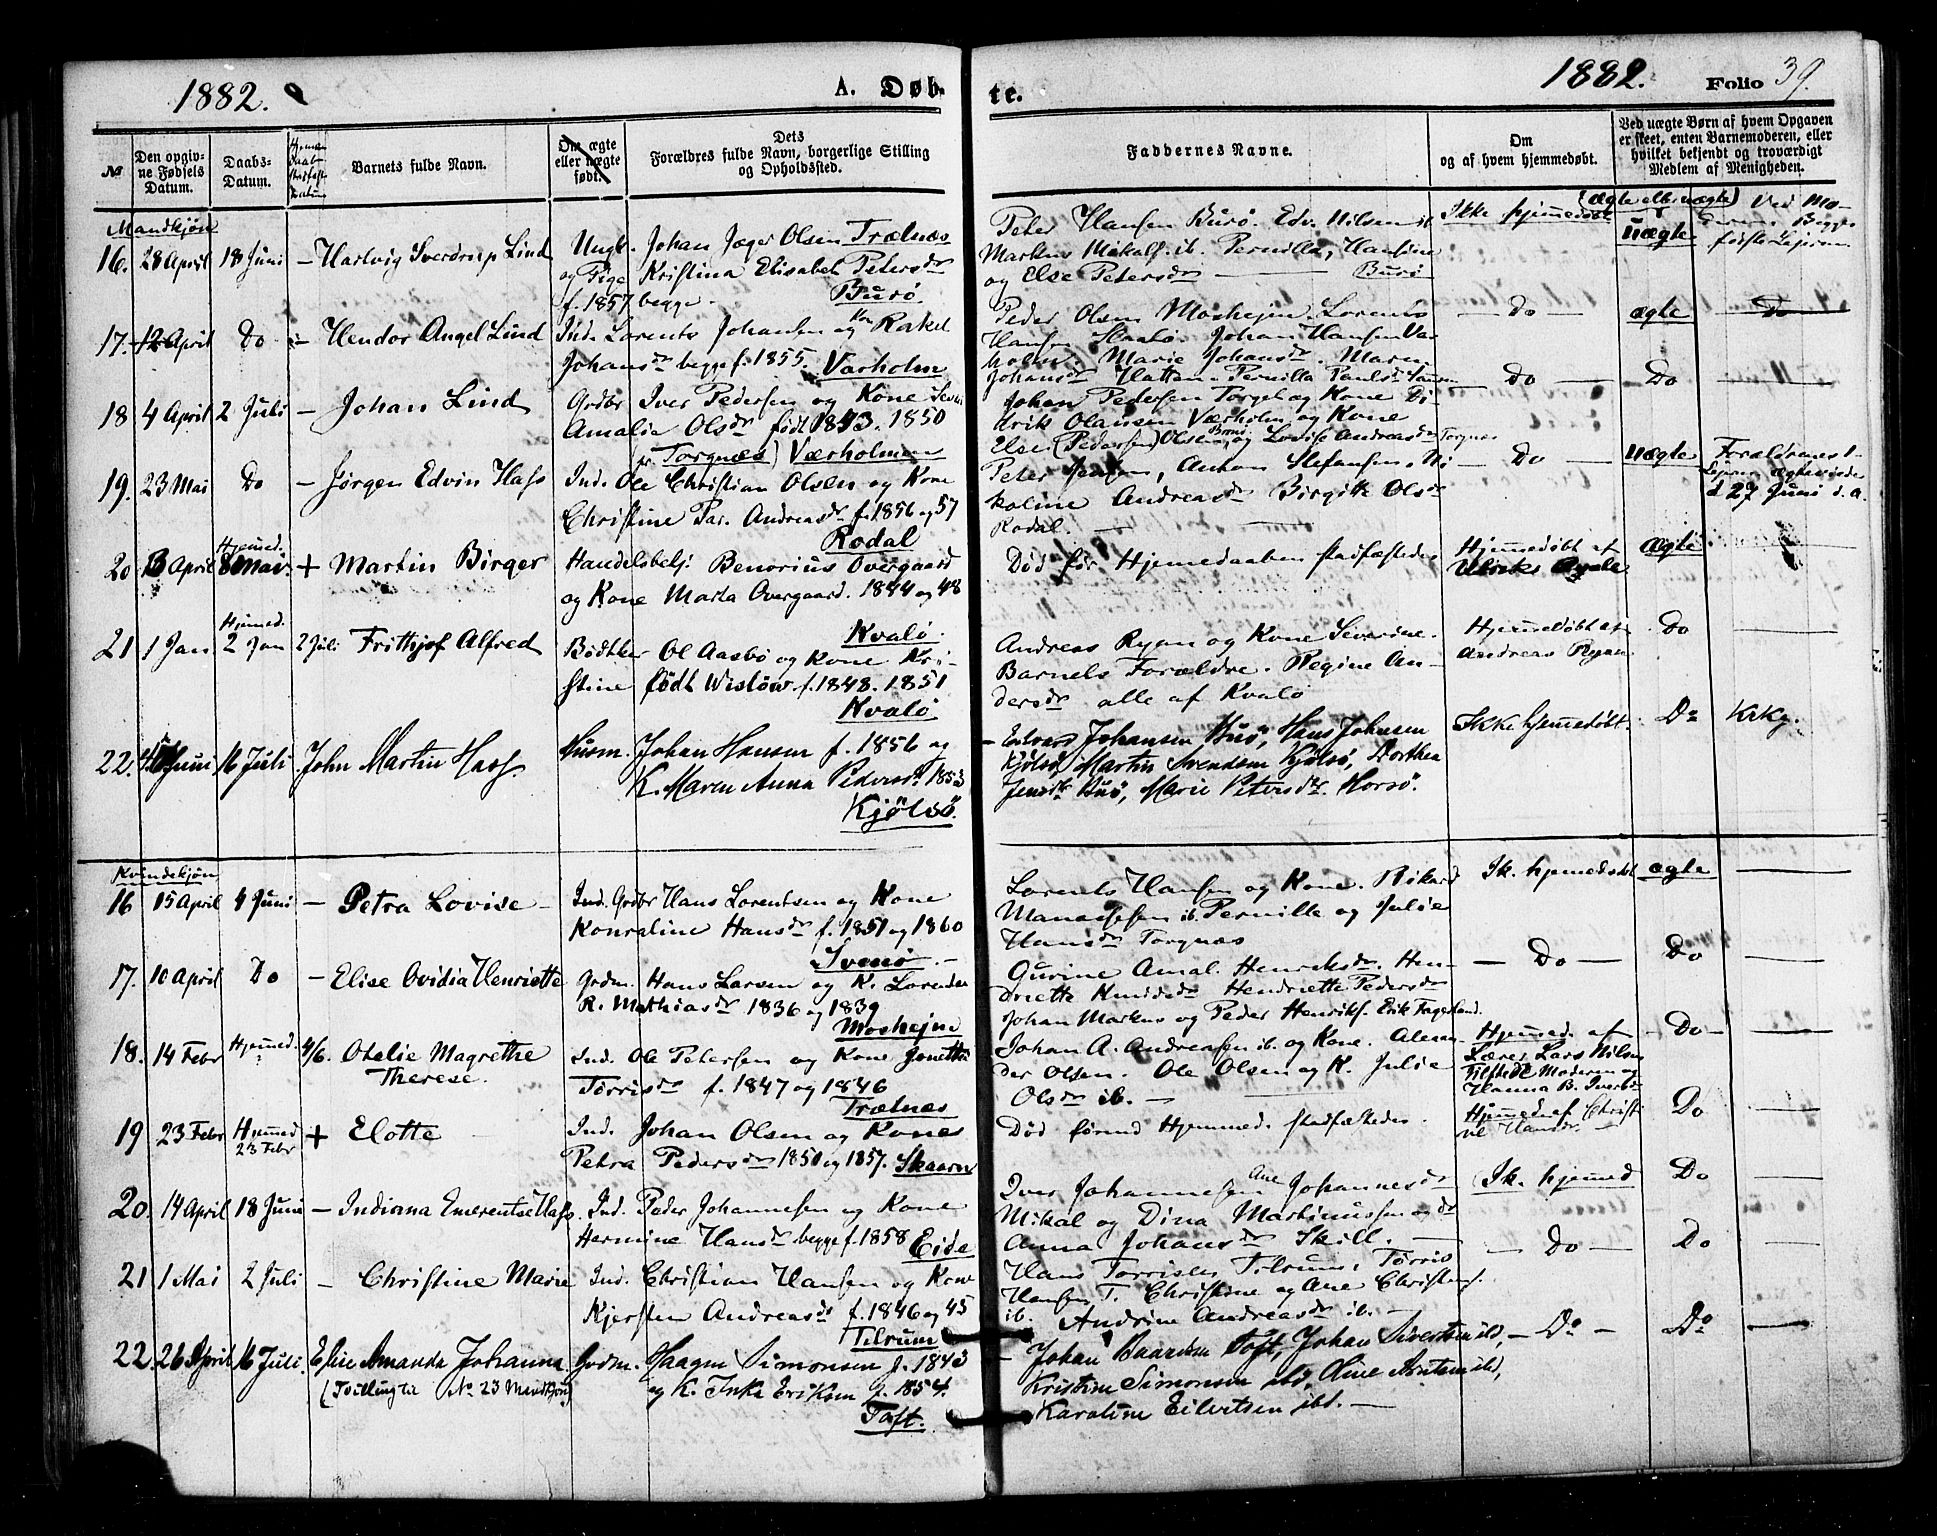 1882.
A. Døb-
te.
1882.
Folio 39.
№
Den opgiv-
ne Fødsels
Datum.
Daabs-
Datum.
Barnets fulde Navn.
Om ægte
eller uægte
født.
Dets
Forældres fulde Navn, borgerlige Stilling
og Opholdssted.
Faddernes Navne.
Om
og af hvem hjemmedøbt.
Ved uægte Børn af hvem Opgaven
er skeet, enten Barnemoderen, eller
hvilket bekjendt og troværdigt
Medlem af Menigheden.
(ægte eller uægte)
Mandkjøn
16. 28 April 18 Juni – Hartvig Sverdrup Lind
Ungk. Johan Jæger Olsen Trælnæs
og Pige Kristina Elisabet Petersdr
f. 1857 begge. Burø
Peter Hansen Burø. Edv. Nilsen ib.
Markus Mikalf. ib. Pernilla, Hansine
og Else Petersdr Burø
Ikke hjemmedøbt
uægte
17. 12 April Do – Hendor Angel Lind
Ind. Lorents Johansen og Kone Rakel
Johansdr begge f. 1855. Varholm
Peder Olsen Moshejm. Lorents
Hansen Johan Hansen Var-
holm. Marie Johansdr. Maren
Johansdr Hatten. Pernilla Paulsdr
Do ægte Do
18 4 April 2 Juli – Johan Lind
Grdbr Iver Pedersen og Kone
Amalie Olsdr født 1843. 1850
(fr. Torgnæs) Værholmen
Johan Pedersen Torgel og Kone Di-
drik Olausen Værholm og Kone
Else (Pedersen) Olsdr og Lovise Andreasdr Torgnæs
Do Do
19. 23 Mai Do – Jørgen Edvin Hass
Ind. Ole Christian Olsen og Kone
Christine Par. Andreasdr f. 1856 og 57
Rodal
Peter Jensen, Anton Stefansen, Ni-
koline Andreasdr Birgitte Olsdr
Rodal.
Do uægte
Forældrenes 1-
d 27 Juni d. a.
20 13 April Hjemmed. 8 Mai + Martin Birger
Handelsbetj. Benorius Overgaard
og Kone Marta Overgaard. 1844 og 48
Kvalø.
Død før Hjemedaaben stadfæstedes
Hjemmedøbt af
ægte
21 1 Jan Hjemmed. 2 Jan 2 Juli Frithjof Alfred
Bødtker Ol Aasbø og Kone Kri-
stine født Wisløw. f. 1848. 1851
Kvalø
Andreas Ryan og Kone Severine.
Barnets Forældre. Regine An-
dersdr alle af Kvalø
Hjemmedøbt af
Andreas Ryan
Do
22. Juni 16 Juli John Martin Hass
Husm. Johan Hansen f. 1856 og
K. Maren Anna Pedersdr 1853
Kjølsø.
– Edvard Johansen Husø, Hans Johnsen
Kjølsø, Martin Svendsen Kjølsø, Dorthea
Jensdr Husø, Marie Petersdr. Horsø.
Ikke hjemmedøbt.
Do Krkg.
Kvindekjøn
16 15 April 4 Juni – Petra Lovise –
Ind. Grdbr Hans Lorentsen og Kone
Konraline Hansdr f. 1851 og 1860
Svenø. –
Lorents Hansen og Kone. Rikard
Manassesen ib. Pernille og Julie
Hansdr Torgnæs
Ik. hjemedøbt ægte
17. 10 April Do – Elise Ovidia Henriette
Grdm. Hans Larsen og K. Lorendse
R. Mathiasdr 1836 og 1839
Moshejm
Gurine Amal. Henriksdr. Hen-
driette Knudsdr Hendriette Pedersdr
Johan Markus og Peder Henriksf. Erik Fagerland.
– Do – Do
18. 14 Febr Hjemmed. 4/6. Otelie Magrethe
Therese.
Ind. Ole Petersen og Kone Jonette
Torrisdr f. 1847 og 1846
Trælnæs
Johan A. Andreasen ib. og Kone. Alexan-
der Olsen. Ole Olsen og K. Julie
Olsdr ib. –
Hjemmed. af
Lærer Lars Nilsen
Tilstede Moderen og
Hanna B. Iversdr
– Do –
19 23 Febr Hjemmed 23 Febr + Elotte
Ind. Johan Olsen og Kone
Petra Pedersdr 1850 og 1857. Skaaren
Død førend Hjemmed. stadfæstedes.
Hjemmed af Christi-
ne Hansdr.
Do
20. 14 April 18 Juni – Indiana Emerentse Hass.
Ind. Peder Johannesen og Kone
Hermine Hansdr begge f. 1858 Eide
Iver Johannesen Ane Johannesdr
Mikal og Dina Martinussen og dr
Anna Johansdr Skill. –
Ik. hjemmed Do
21 1 Mai 2 Juli – Christine Marie
Ind. Christian Hansen og Kone
Kjersten Andreasdr f. 1846 og 45
Tilrum
Hans Torrisen Tilrum. Torris
Hansen T. Christine og Ane Christensd.
ib. Andrine Andreasdr ib. –
– Do – Do
22. 26 April 16 Juli. Elise Amanda Johanna.
(Tvilling til No. 23 Mandkjøn)
Grdm. Haagen Simonsen f. 1843
og K. Inka Eriksen f. 1854.
Toft.
– Johan Baardsen Toft, Johan Sivertsen ibd,
Kristine Simonsen ibd, Oline Arntsen ibd,
Karoline Eilertsen ibd. –
– Do – Do